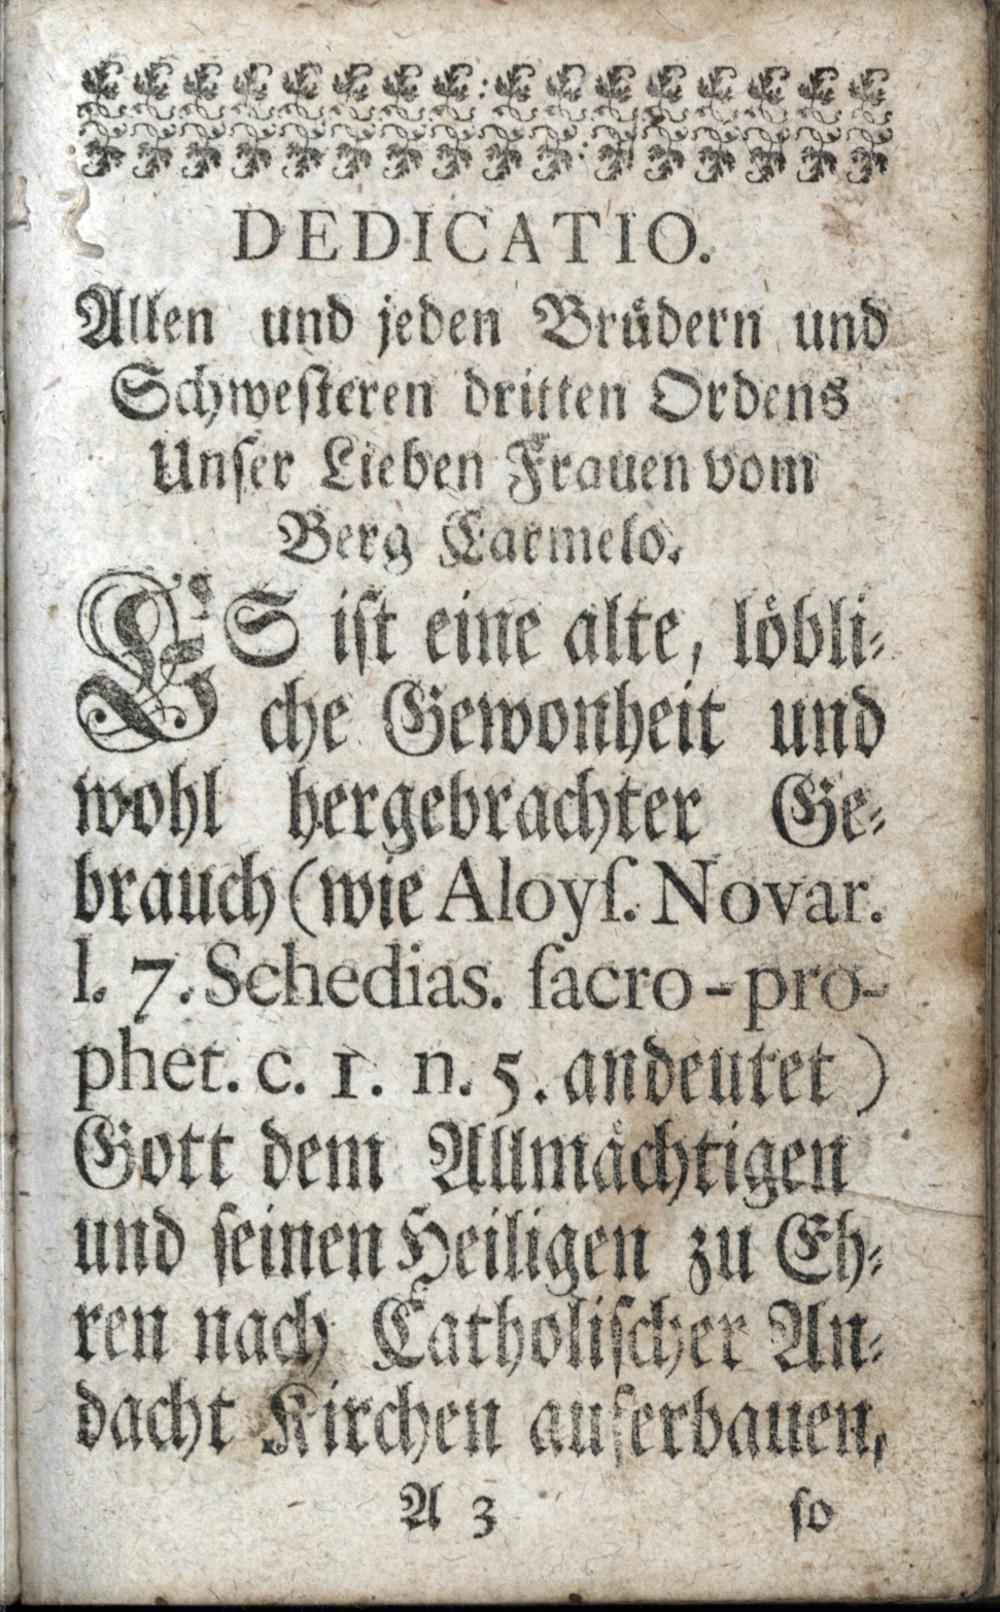 DEDICATIO.
Allen und jeden Brůdern und
Schweſteren dritten Ordens
Unſer Lieben Frauen vom
Berg Carmelo.
ES iſt eine alte, lôbli⸗
che Gewonheit und
wohl hergebrachter Ge⸗
brauch (wie Aloyſ. Novar.
l. 7. Schedias. ſacro-pro-
phet. c. 1. n. 5. andeutet)
Gott dem Allmåchtigen
und ſeinen Heiligen zu Eh⸗
ren nach Catholiſcher An⸗
dacht Kirchen auferbauen,
A 3 ſo